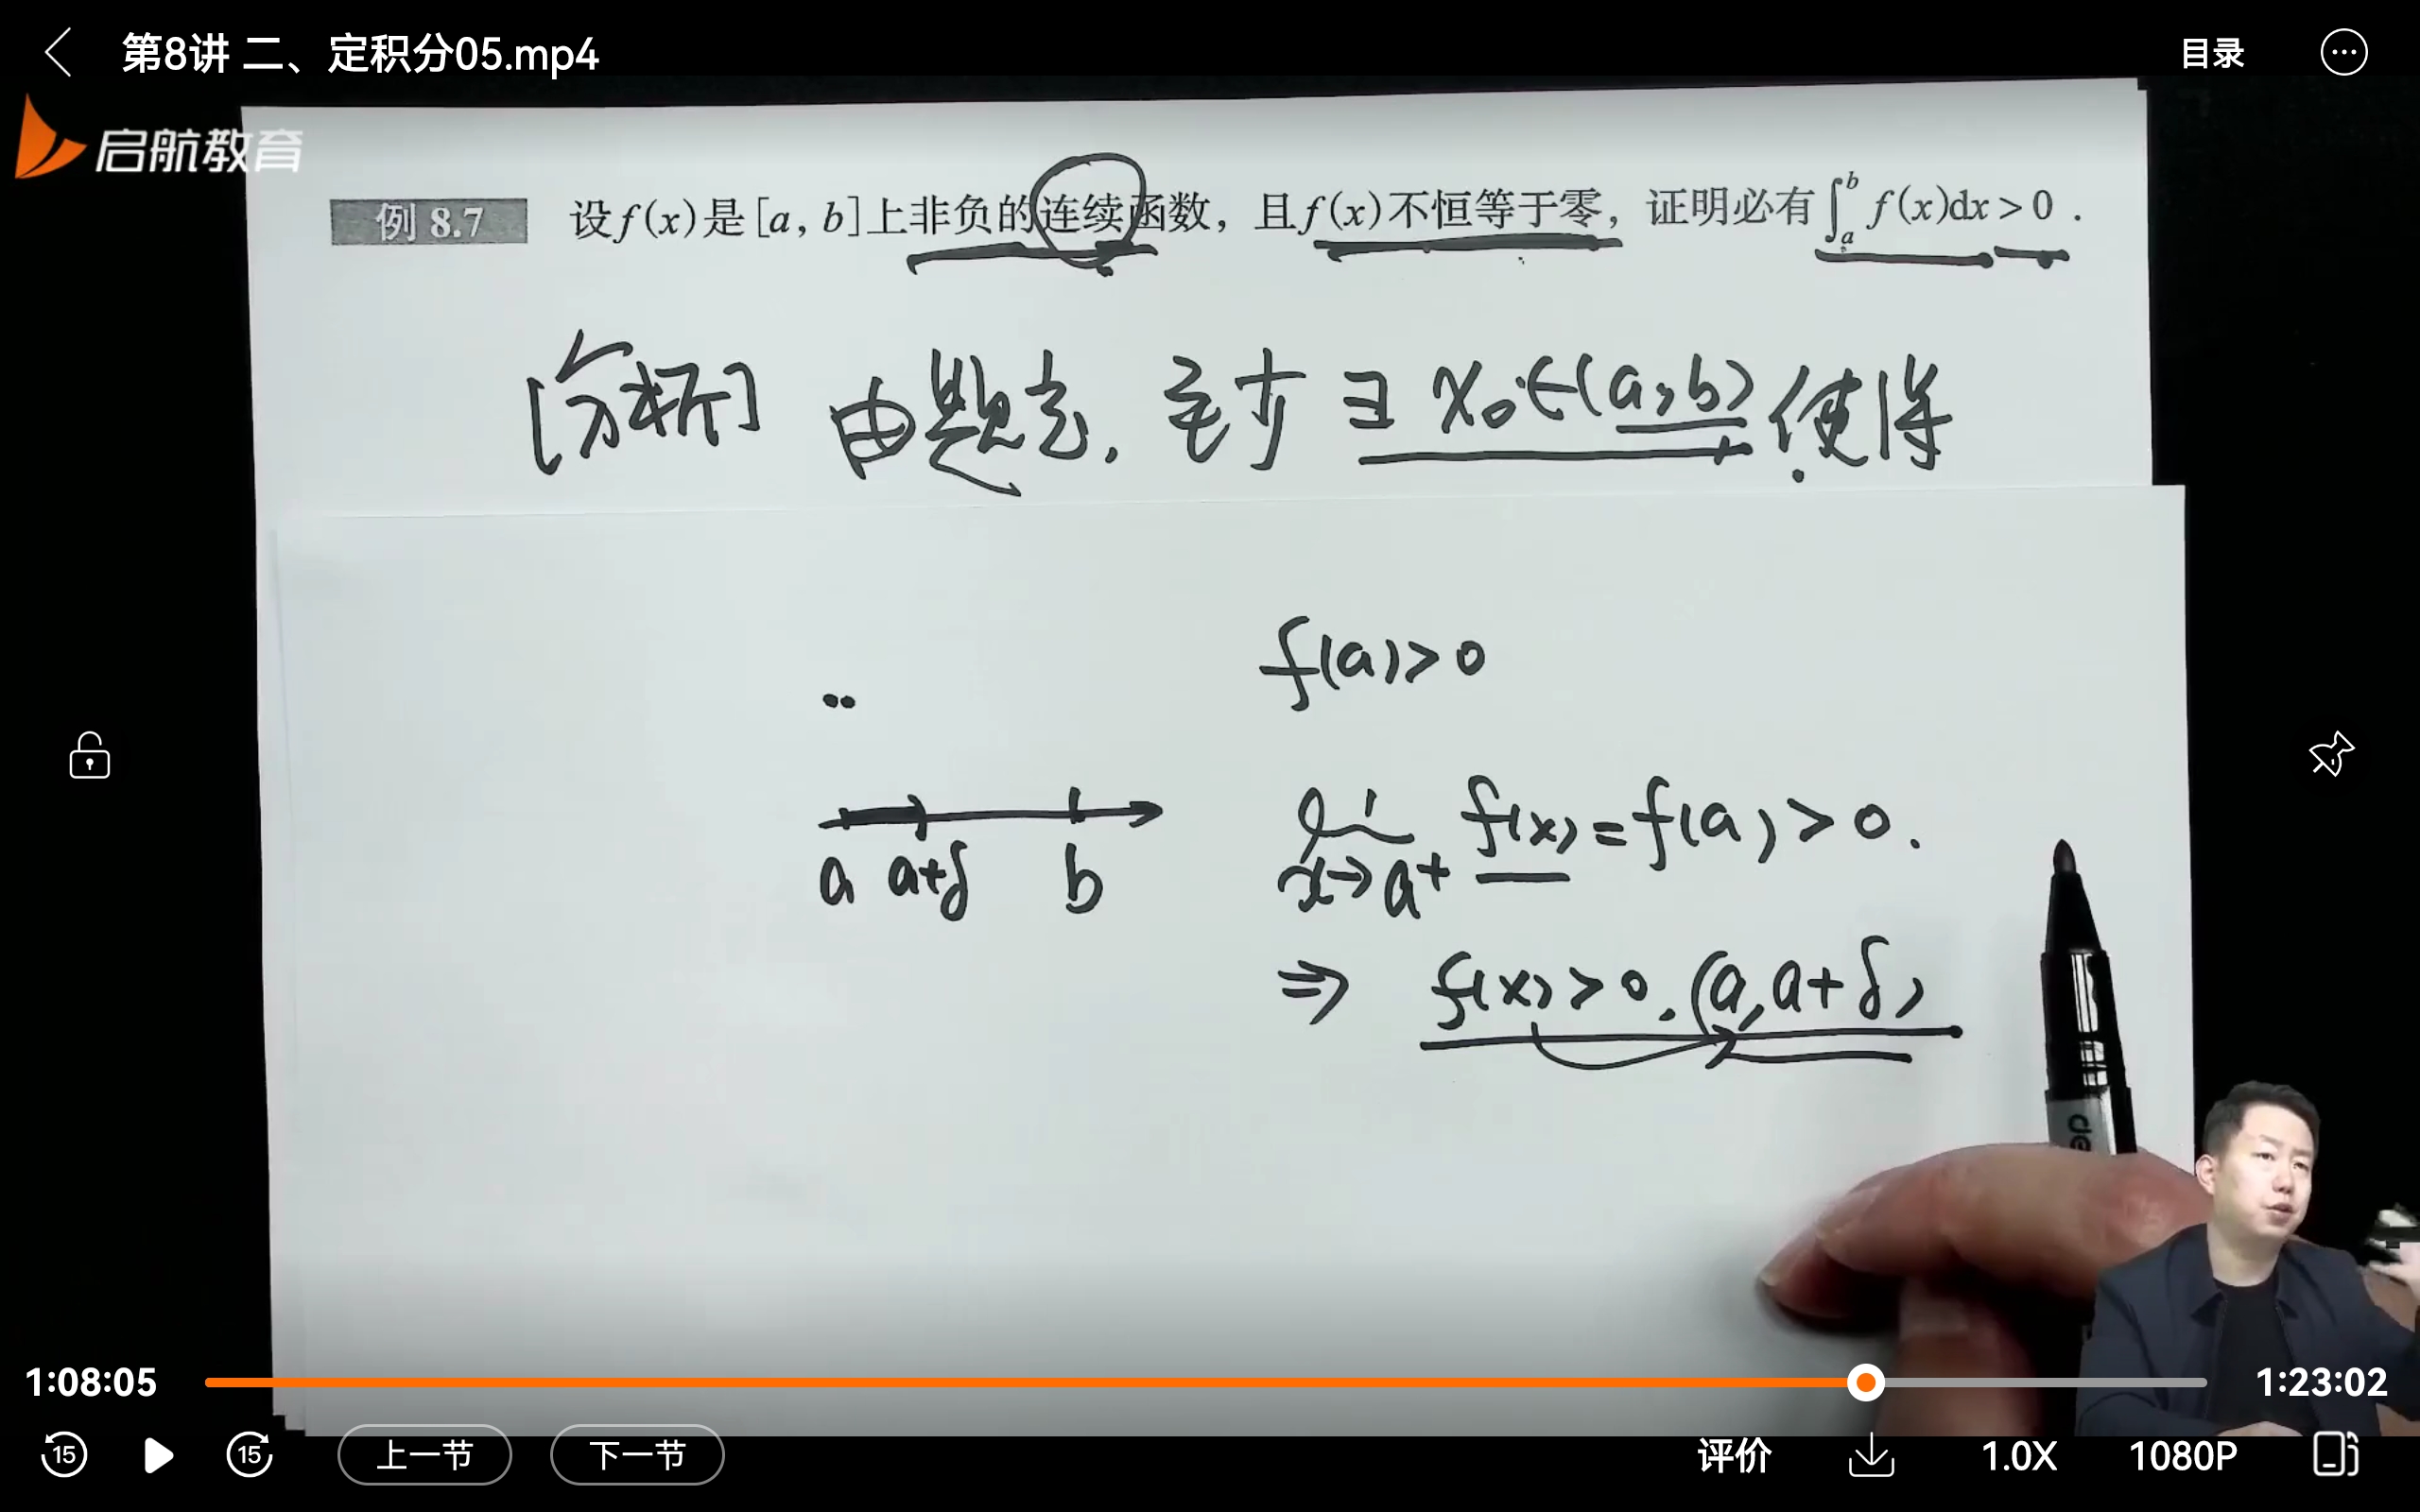 第8讲 二、定积分05.mp4
目录
启航教育
例 8.7 设f(x)是[a, b]上非负的连续函数，且f(x)不恒等于零，证明必有∫_a^b f(x)dx>0．
[分析] 由题意，至少∃ x₀∈(a,b) 使得
f(a)>0
a a+δ b
lim x→a⁺ f(x)=f(a)>0.
⇒ f(x)>0. (a, a+δ)
de
1:08:05
1:23:02
15 15 上一节 下一节 评价 1.0X 1080P